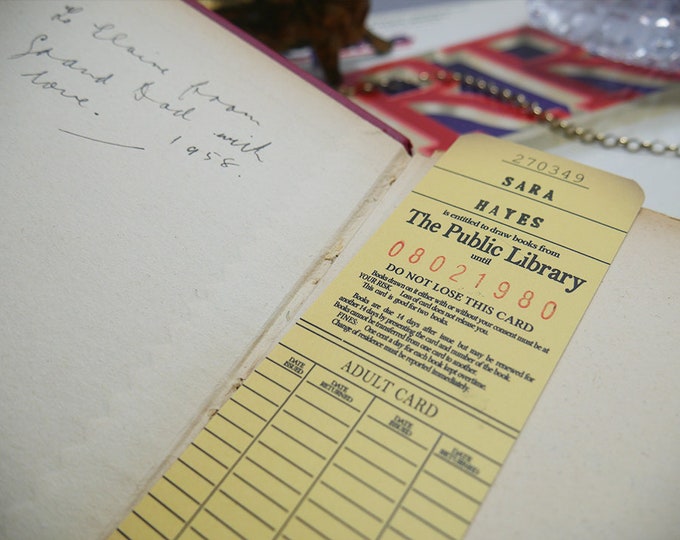 To Claire from
Grand Dad with
love. 1958.
270349
SARA
HAYES
is entitled to draw books from
The Public Library
until
08021980
DO NOT LOSE THIS CARD
Books drawn on it either with or without your consent must be at
YOUR RISK. Loss of card does not release you.
This card is good for two books.
Books are due 14 days after issue but may be renewed for
another 14 days by presenting the card and number of the book.
Books cannot be transferred from one card to another.
FINES: One cent a day for each book kept overtime.
Change of residence must be reported immediately.
ADULT CARD
DATE ISSUED
DATE RETURNED
DATE ISSUED
DATE RETURNED